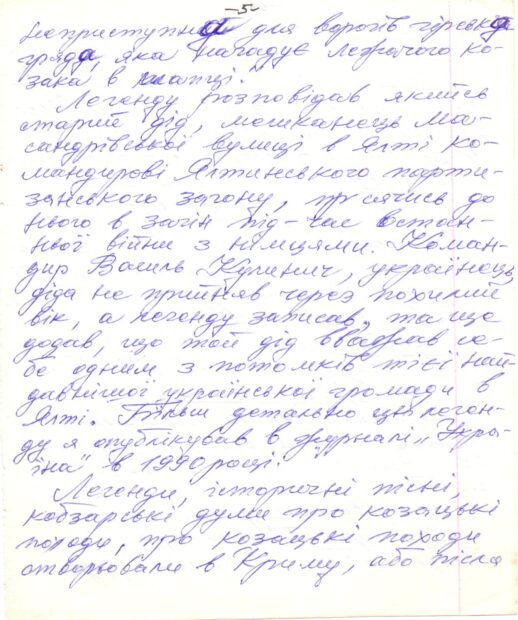 -5-
неприступна для ворогів гірська
гряда, яка нагадує лежачого ко-
зака в шапці."
Легенду розповідав якийсь
старий дід, мешканець Ма-
сандрівської вулиці в Ялті ко-
мандирові Ялтинського парти-
занського загону, просячись до
нього в загін під-час остан-
ньої війни з німцями. Коман-
дир Василь Кулинич, українець,
діда не прийняв через похилий
вік, а легенду записав, та ще
додав, що той дід вважав се-
бе одним з потомків тієї най-
давнішої української громади в
Ялті. Більш детально цю леген-
ду я опублікував в журналі „Укра-
їна" в 1990 році.
Легенди, історичні пісні,
кобзарські думи про козацькі
походи, про козацькі походи
створювали в Криму, або після